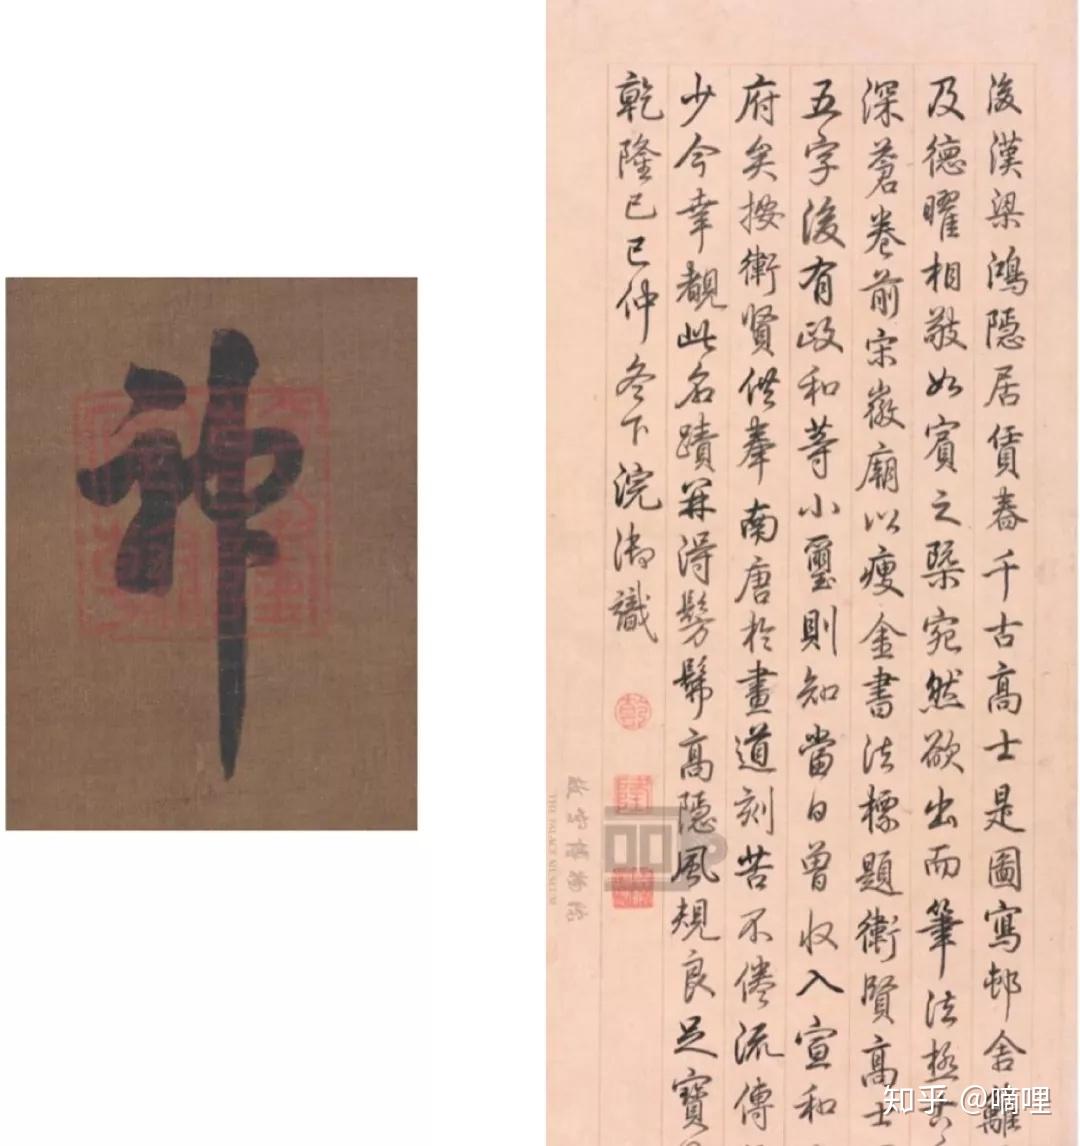 神
後漢梁鴻隱居賃舂千古高士是圖寫邨舍籬
及德曜相敬如賓之槩宛然欲出而筆法極
深蒼卷前宋徽廟以瘦金書法標題衛賢高士
五字後有政和等小璽則知當日曾收入宣和
府矣按衛賢供奉南唐於畫道刻苦不倦流傳
少今幸覩此名蹟兼得髣髴高隱風規良足寶
乾隆己巳仲冬下浣御識
乾
隆
故宮博物院
THE PALACE MUSEUM
知乎 @嘀哩